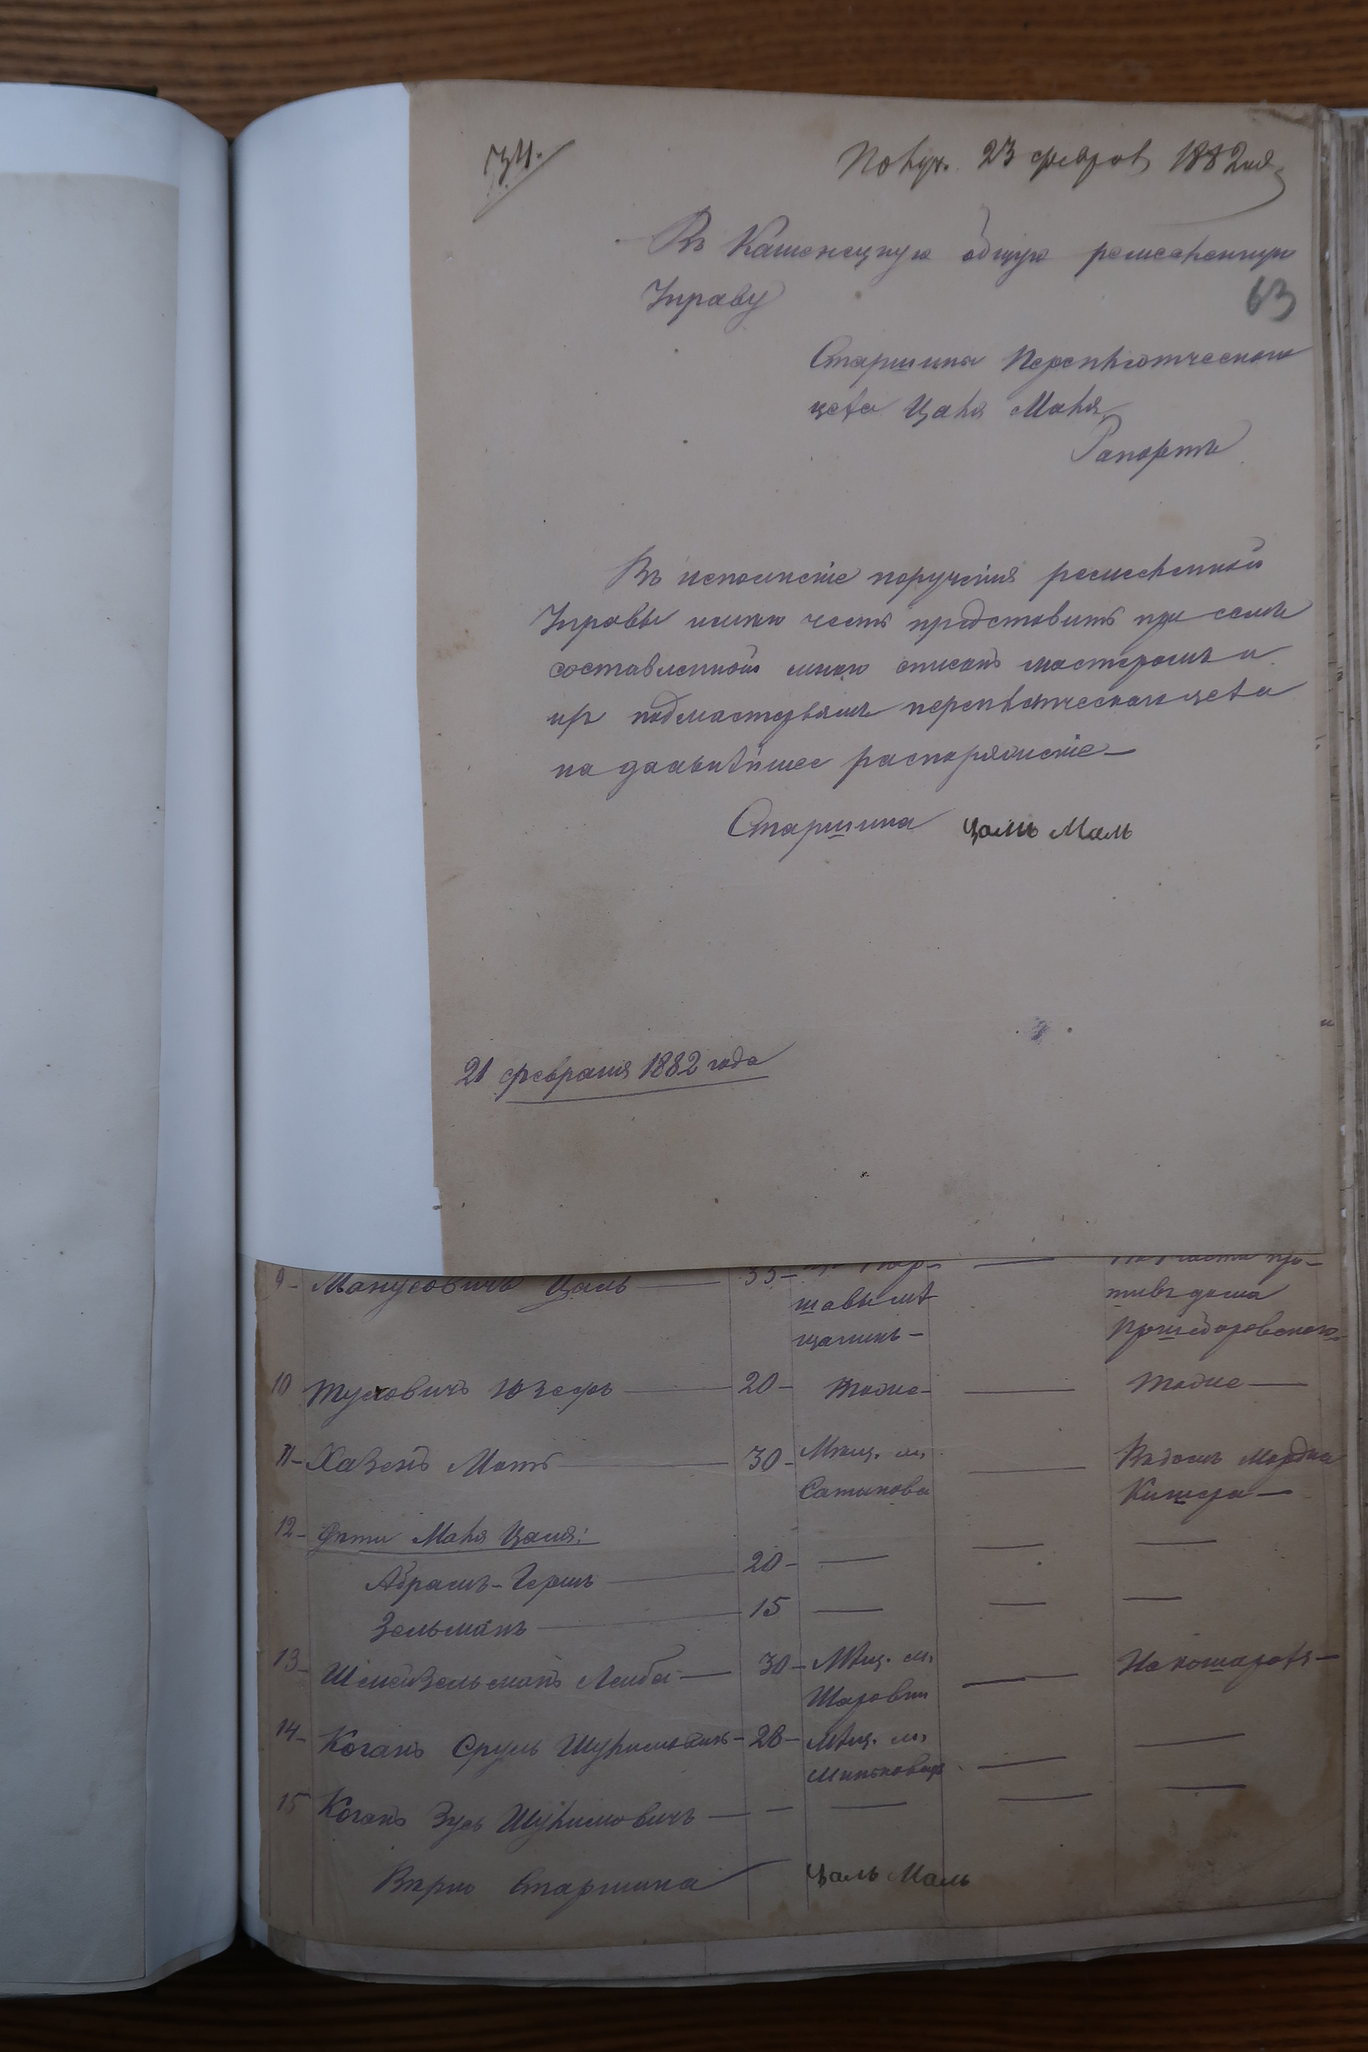 74.
Получ. 23 феврал 1882 года
Въ Каменецкую общую ремесленную
Управу
63
Старшины Переплетческаго
цеха Цаля Маля
Рапортъ
Въ исполненіе порученія ремесленной
Управы имѣю честь представить при семъ
составленной мною списокъ мастерамъ и
ихъ подмастерьямъ переплетческаго цеха
на дальнѣйшее распоряженіе
Старшина Цаль Маль
21 февраля 1882 года
9 - Манусовичъ Цаль — 35 -
шавы мѣ
щанинъ —
тивъ дома
10 Тусловичъ Юзефъ — 20 - тоже — — тоже —
11 - Хазенъ Мотъ — 30 - Мѣщ. м. — Въ домъ Мордка
Сатанова Кишера —
12 - Дѣти Маля Цаля: — —
Абрамъ-Гершъ — 20 - —
Зельманъ — 15 — — —
13 - Лейба — 30 - Мѣщ. м. — На
Шаровки
14 - Коганъ Сруль Шулимовичъ - 28 - Мѣщ. м. — —
Миньковцъ
15 Коганъ Зусь Шулимовичъ — - — — —
Вѣрно Старшина Цаль Маль